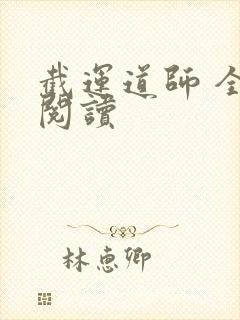 截運道師 全
閱讀
林惠卿